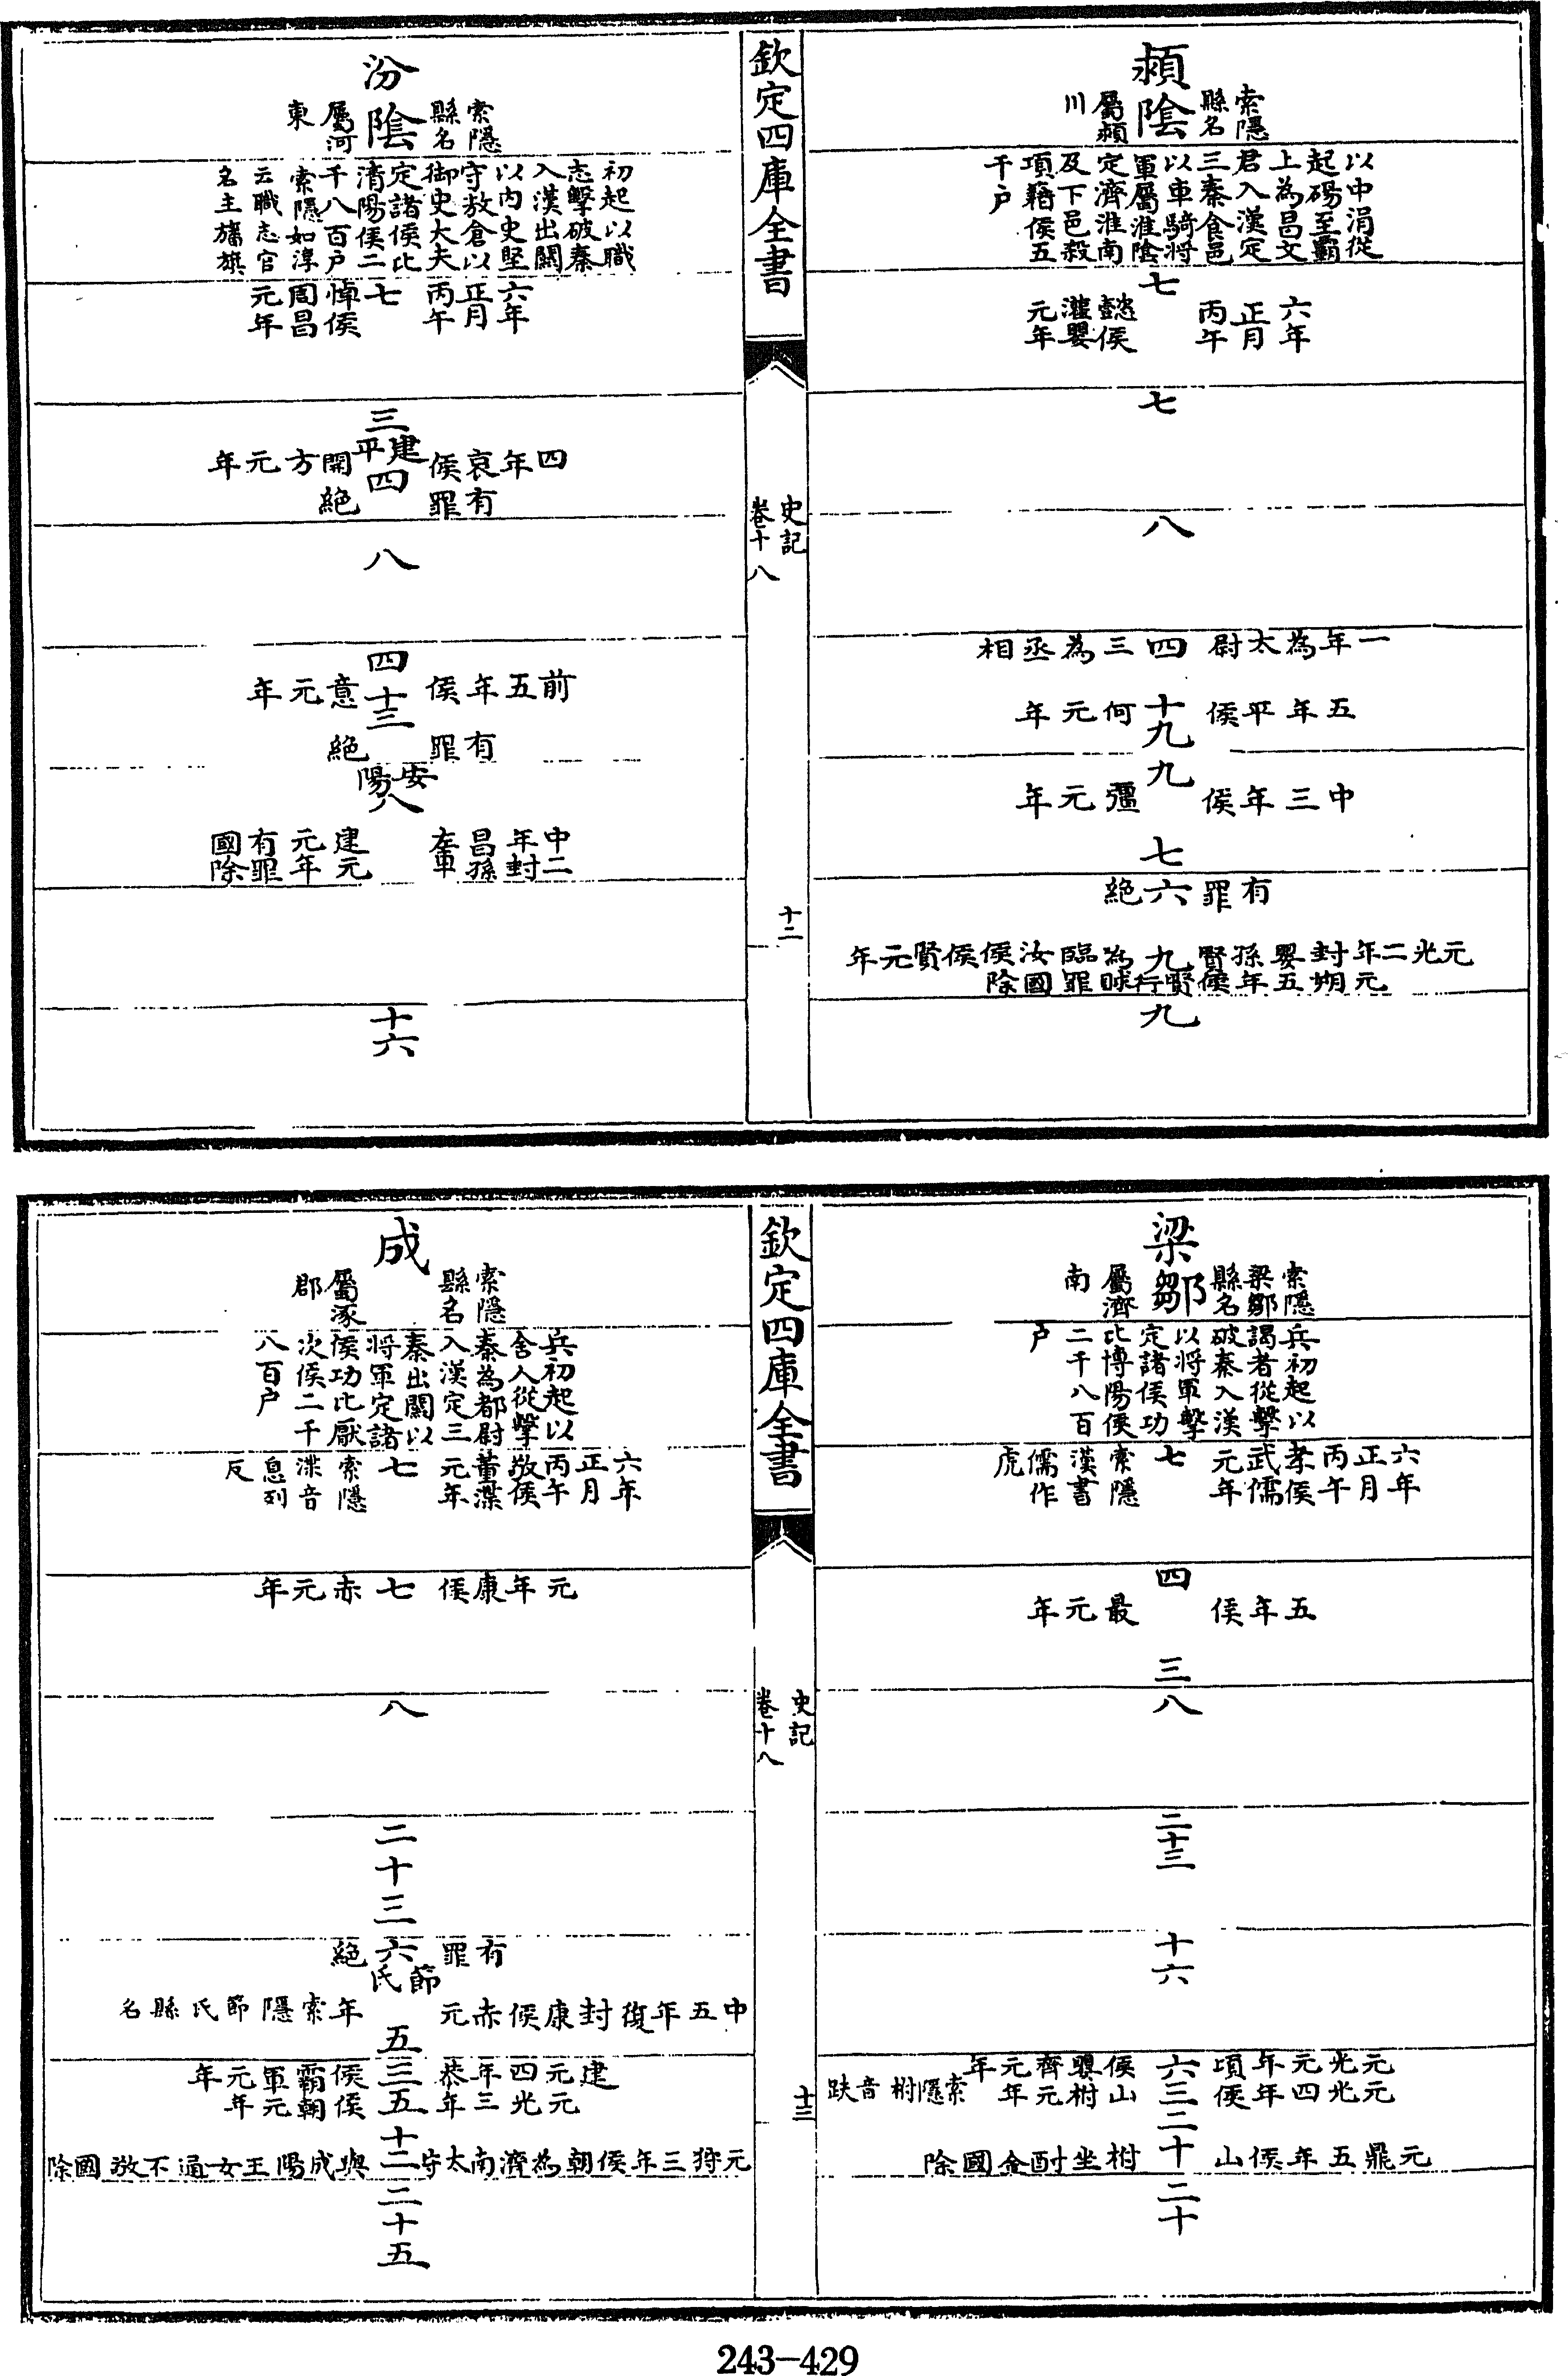 潁陰
索隱
縣名
屬潁
川
以中涓從
起碭至霸
上為昌文
君入漢定
三秦食邑
以車騎將
軍屬淮陰
定濟淮南
及下邑殺
項籍侯五
千户
六年
正月
丙午
七
懿侯
灌嬰
元年
七
八
一年為太尉四三為丞相
五年平侯十九何元年
九
中三年侯彊元年
七
有罪六絶
元光二年封嬰孫賢九為臨汝侯侯賢元年
元朔五年侯賢行賕罪國除
九
欽定四庫全書
史記
卷十八
十二
汾陰
索隱
縣名
屬河
東
初起以職
志擊破秦
入漢出關
以内史堅
守敖倉以
御史大夫
定諸侯比
清陽侯二
千八百户
索隱如淳
云職志官
名主旛旗
六年
正月
丙午
七
悼侯
周昌
元年
三
建平
四年哀侯開方元年
四
有罪絶
八
四
前五年侯意元年
十三
有罪絶
安陽
八
中二
年封
昌孫
左車
建元
元年
有罪
國除
十六
梁鄒
索隱
梁鄒
縣名
屬濟
南
兵初起以
謁者從擊
破秦入漢
以將軍擊
定諸侯功
比博陽侯
二千八百
户
六年
正月
丙午
孝侯
武儒
元年
七
索隱
漢書
儒作
虎
四
五年侯最元年
三
八
二十三
十六
元光元年頃六侯嬰齊元年
元光四年侯三山柎元年
索隱柎音趺
二十
元鼎五年侯山柎坐酎金國除
二十
欽定四庫全書
史記
卷十八
十三
成
索隱
縣名
屬涿
郡
兵初起以
舍人從擊
秦為都尉
入漢定三
秦出關以
將軍定諸
侯功比厭
次侯二千
八百户
六年
正月
丙午
敬侯
董渫
元年
七
索隱
渫音
息列
反
元年康侯七赤元年
八
二十三
有罪六絶
節氏
中五年復封康侯赤元年
索隱節氏縣名
五
建元四年恭三侯霸軍元年
元光三年五侯朝元年
十二
元狩三年侯朝為濟南太守與成陽王女通不敬國除
二十五
243-429